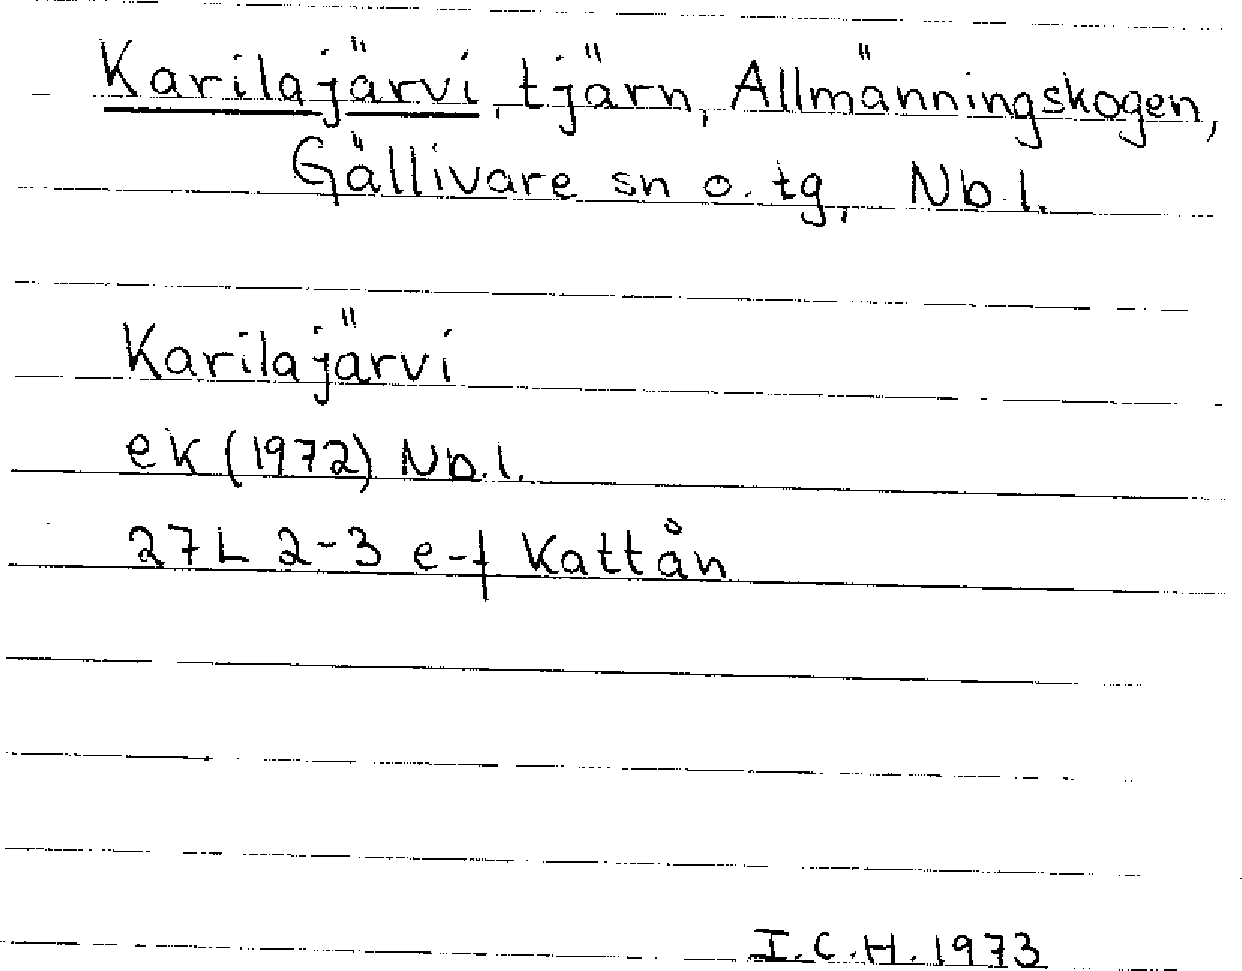 Karilajärvi, tjärn, Allmänningskogen,
Gällivare sn o. tg, Nb.l.
Karilajärvi
ek (1972) Nb.l.
27L 2-3 e-f Kattån
I.C.H. 1973